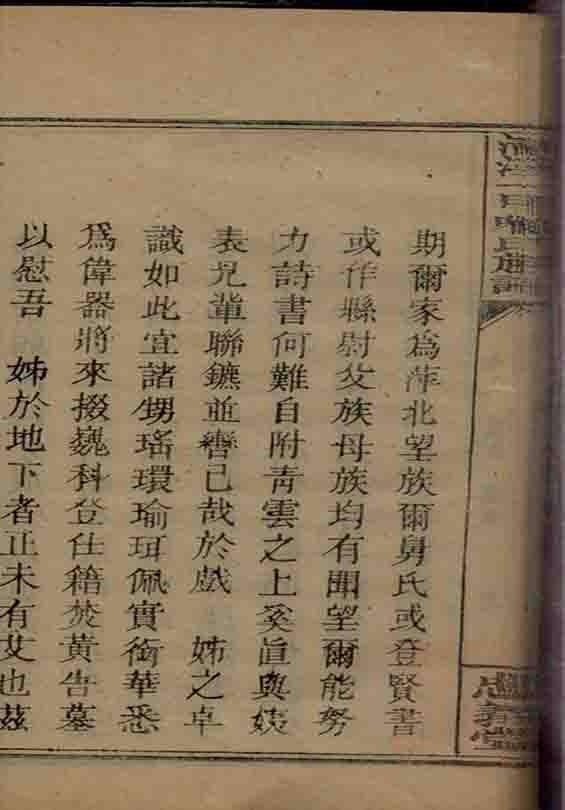 期爾家為萍北望族爾舅氏或登賢書
或作縣尉父族母族均有聞望爾能努
力詩書何難自附青雲之上奚啻與姨
表兄軰聯鑣並轡已哉於戲 姊之卓
識如此宜諸甥瑤環瑜珥佩實銜華悉
為偉器將來掇巍科登仕籍焚黃告墓
以慰吾 姊於地下者正未有艾也茲